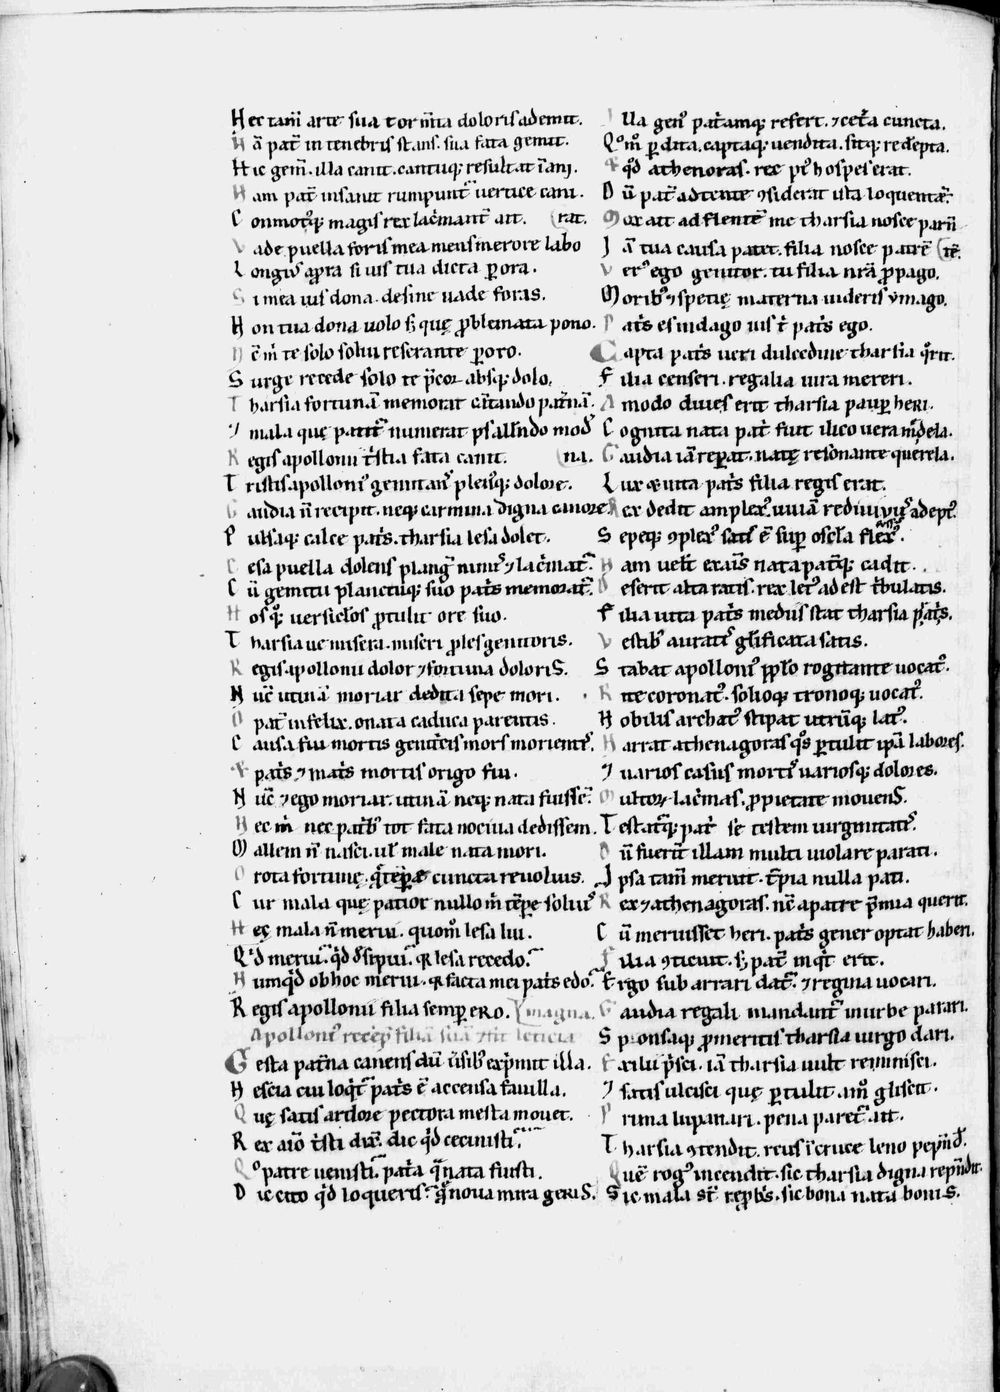 Hec tam̄ arte sua torm̄ta doloris ademit.
Nā pat̄ in tenebris stans. sua fata gemit.
Hic gem̄. illa canit. cantuq; resultat ināni.
Nam pat̄ insanit rumpunt᷑ uertice cani.
Conmotꝰq; magis rex lac̄mant᷑ ait. (rat.
Vade puella foris mea mens merore labo
Longiꝰ ꝓpra si uis tua dicta ꝑora.
Si mea uis dona. desine uade foras.
Non tua dona uolo sꝫ quę ꝓblemata pono.
Nē m̄ te solo solui reserante ꝑoro.
Surge recede solo te p̄cor absq; dolo.
Tharsia fortunā memorat c̄tando pat̄nā.
⁊ mala quę patit᷑ numerat psallendo mod̄
Regis apollonii t̄stia fata canit. (na.
Tristis apolloniꝰ gemitanꝰ pleiꝰq; dolore.
Gaudia n̄ recipit. neq; carmina digna canore.
Pulsaq; calce pat̄s. tharsia lesa dolet.
Cesa puella dolens planḡ nimiꝰ ⁊ lac̄mat᷑.
Cū gemitu planctuq; suo pat̄s memorat᷑.
Hos qꝫ uersiclos ꝓtulit ore suo.
Tharsia ue misera. miseri ꝓles genitoris.
Regis apollonii dolor ⁊ fortuna doloris.
Nūc utinā moriar dedita sepe mori.
O pat̄ infelix. o nata caduca parentis.
Causa fui mortis genit̄cis mors morientꝭ.
⁊ pat̄s ⁊ mat̄s mortis origo fui.
Nūc ⁊ ego moriar. utinā neq; nata fuissē.
Hec m̄ nec pat̄bꝰ tot fata nociua dedissem.
Mallem n̄ nasci. ul̄ male nata mori.
O rota fortunę. q̄ tēpꝑe cuncta reuoluis.
Cur mala quę patior nullo m̄ tēꝑe soluiꝰ
Hęc mala n̄ merui. quom̊ lesa lui.
Qⁱd merui. qͥd d̄sipui. qͥ lesa recedo.
Numqͥd ob hoc merui. qͥ facta mei pat̄s edo.
Regis apollonii filia semꝑ ero. (magna.
Apolloniꝰ recep̄ filiā suā ⁊fit leticia
Gesta pat̄na canens dū ūsibꝰ exp̄mit illa.
Nescia cui loqͥt᷑ pat̄s ē accensa fauilla.
Quę satis ardore pectora mesta mouet.
Rex aiō t̄sti dix̄. dic qͥd cecinisti.
Qͦ patre uenisti. pat̄a q̄ nata fuisti.
Dic cito qͥd loqueris. q̄ noua mira geris.
Illa genꝰ pat̄amq; refert. ⁊ cet̄a cuncta.
Qͦm̄ ꝑdita. captaq; uendita. sitq; redēpta.
⁊ qͥd athenoras. rex pͥꝰ hospes erat.
Dū pat̄ adtente ꝯsiderat ista loquentē.
Mox ait ad flentē me tharsia nosce parn̄
Iā tua causa patet. filia nosce patrē (tē.
Verꝰ ego genitor. tu filia nr̄a ꝓpago.
Moribꝰ ⁊ spetię materna uideris ymago.
Pat̄s es indago uis t̄ pat̄s ego.
Capta pat̄s ueri dulcedine tharsia qͥrit.
Filia censeri. regalia iura mereri.
Amodo diues erit tharsia pauꝑ heri.
Cognita nata pat̄ fiut ilico uera mēdela.
Gaudia iā reꝑat. natę resonante querela.
Lux ⁊ uita pat̄s filia regis erat.
Rex dedit amplexꝰ. uiuiā rediuiuꝰ adeptꝰ.
Sepeq; ꝯplexꝰ satis ē suꝑ oscl̄a flexꝰ.
Nam uelt̄ exaīs nata pat̄q; cadit.
Deserit alta ratis. rex letꝰ adest t̄bulatis.
Filia uita pat̄s mediꝰ stat tharsia p̄pat̄s.
Vestibꝰ auratꝭ gl̄ificata satis.
Stabat apolloniꝰ ppl̄o rogitante uocatꝰ.
Rite coronatꝰ. solioq; tronoq; uocatꝰ.
Nobilis archatꝰ stipat utrūq; latꝰ.
Narrat athenagoras qͦs ꝑtulit ipā labores.
⁊ uarios casus mortꝭ uariosq; dolores.
Multoꝝ lac̄mas. ꝓ pietate mouens.
Testat᷑q; pat̄ se testem uirginitatꝭ.
Dū fuerīt illam multi uiolare parati.
Ipsa tam̄ meruit. t̄pia nulla pati.
Rex ⁊ athenagoras. nē a patre p̄mia querit.
Cū meruisset heri. pat̄s gener optat haberi.
Filia ꝯticuit. sꝫ pat̄ inqͥt erit.
Ergo sub arrari dat᷑. ⁊ regina uocari.
Gaudia regali mandant᷑ in urbe parari.
Sponsaq; ꝓ meritis tharsia uirgo dari.
Exilii p̄sci. iā tharsia uult reminisci.
⁊ satis ulcisci quę ꝑtulit. am̊ gliscit.
Prima lupanari. pena paret᷑ ait.
Tharsia ꝯtendit. reus ī cruce leno pepn̄d̄.
Quē rogꝰ incendit. sic tharsia digna repn̄dit.
Sic mala st̄ reꝓbis. sic bona nata bonis.